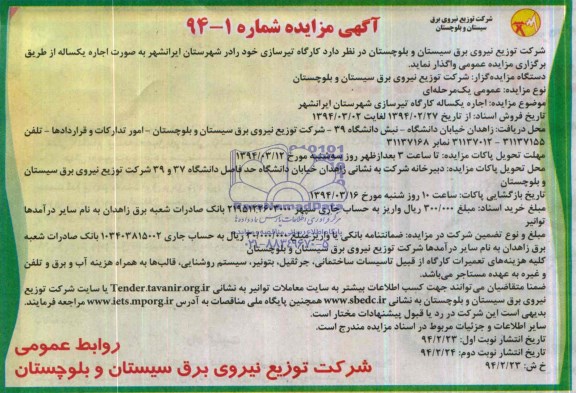 شرکت توزیع نیروی برق
سیستان و بلوچستان
آگهی مزایده شماره ۱-۹۴
شرکت توزیع نیروی برق سیستان و بلوچستان در نظر دارد کارگاه تیرسازی خود رادر شهرستان ایرانشهر به صورت اجاره یکساله از طریق
برگزاری مزایده عمومی واگذار نماید.
دستگاه مزایده‌گزار: شرکت توزیع نیروی برق سیستان و بلوچستان
نوع مزایده: عمومی یک‌مرحله‌ای
موضوع مزایده: اجاره یکساله کارگاه تیرسازی شهرستان ایرانشهر
تاریخ فروش اسناد: از تاریخ ۱۳۹۴/۰۲/۲۷ لغایت ۱۳۹۴/۰۳/۰۲
محل دریافت: زاهدان خیابان دانشگاه - نبش دانشگاه ۳۹ - شرکت توزیع نیروی برق سیستان و بلوچستان - امور تدارکات و قراردادها - تلفن
۳۱۱۳۷۱۵۵ - ۳۱۱۳۷۰۱۲ نمابر ۳۱۱۳۷۱۶۸
مهلت تحویل پاکات مزایده: تا ساعت ۳ بعدازظهر روز سه‌شنبه مورخ ۱۳۹۴/۰۳/۱۲
محل تحویل پاکات مزایده: دبیرخانه شرکت به نشانی زاهدان خیابان دانشگاه حد فاصل دانشگاه ۳۷ و ۳۹ شرکت توزیع نیروی برق سیستان
و بلوچستان
تاریخ بازگشایی پاکات: ساعت ۱۰ روز شنبه مورخ ۱۳۹۴/۰۳/۱۶
مبلغ خرید اسناد: مبلغ ۳۰۰/۰۰۰ ریال واریز به حساب جاری سپهر بانک صادرات شعبه برق زاهدان به نام سایر درآمدها
توانیر
مبلغ و نوع تضمین شرکت در مزایده: ضمانتنامه بانکی یا واریز مبلغ ریال به حساب جاری ۱۰۳۴۰۳۸۱۵۰۰۲ بانک صادرات شعبه
برق زاهدان به نام سایر درآمدها شرکت توزیع نیروی برق سیستان و بلوچستان
کلیه هزینه‌های تعمیرات کارگاه از قبیل تاسیسات ساختمانی، جرثقیل، بتونیر، سیستم روشنایی، قالب‌ها به همراه هزینه آب و برق و تلفن
و غیره به عهده مستاجر می‌باشد.
ضمنا متقاضیان می‌توانند جهت کسب اطلاعات بیشتر به سایت معاملات توانیر به نشانی Tender.tavanir.org.ir یا سایت شرکت توزیع
نیروی برق سیستان و بلوچستان به نشانی www.sbedc.ir همچنین پایگاه ملی مناقصات به آدرس www.iets.mporg.ir مراجعه فرمایند.
بدیهی است این شرکت در رد یا قبول پیشنهادات مختار است.
سایر اطلاعات و جزئیات مربوط در اسناد مزایده مندرج است.
تاریخ انتشار نوبت اول: ۹۴/۲/۲۳
تاریخ انتشار نوبت دوم: ۹۴/۲/۲۴
خ ش: ۹۴/۲/۲۳
روابط عمومی
شرکت توزیع نیروی برق سیستان و بلوچستان